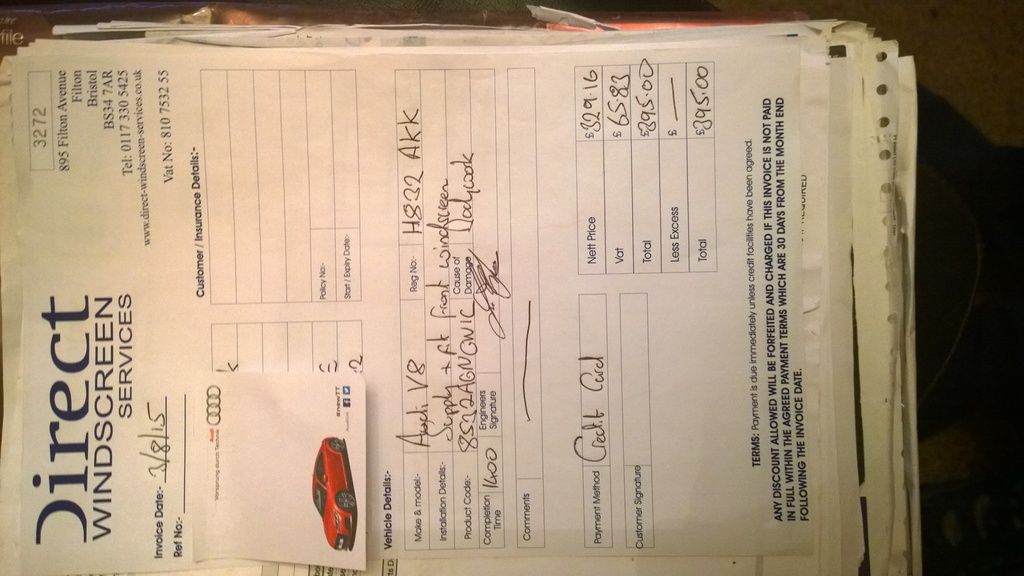 file
3272
Direct
WINDSCREEN
SERVICES
895 Filton Avenue
Filton
Bristol
BS34 7AR
Tel: 0117 330 5425
www.direct-windscreen-services.co.uk
Vat No: 810 7532 55
Invoice Date:- 3/8/15
Ref No:-
Customer / Insurance Details:-
Policy No:-
Start / Expiry Date:-
Vorsprung durch Technik
Audi
Vehicle Details:-
Make & model:- Audi V8 Reg No:- H832 AKK
Installation Details:- Supply + fit front windscreen
Product Code:- 8532AGNGWIC Cause of Damage
Completion Time 1400 Engineers Signature
Comments
Payment Method Credit Card
Customer Signature
Nett Price £329.16
Vat £65.83
Total £395.00
Less Excess £ —
Total £395.00
TERMS: Payment is due immediately unless credit facilities have been agreed.
ANY DISCOUNT ALLOWED WILL BE FORFEITED AND CHARGED IF THIS INVOICE IS NOT PAID
IN FULL WITHIN THE AGREED PAYMENT TERMS WHICH ARE 30 DAYS FROM THE MONTH END
FOLLOWING THE INVOICE DATE.